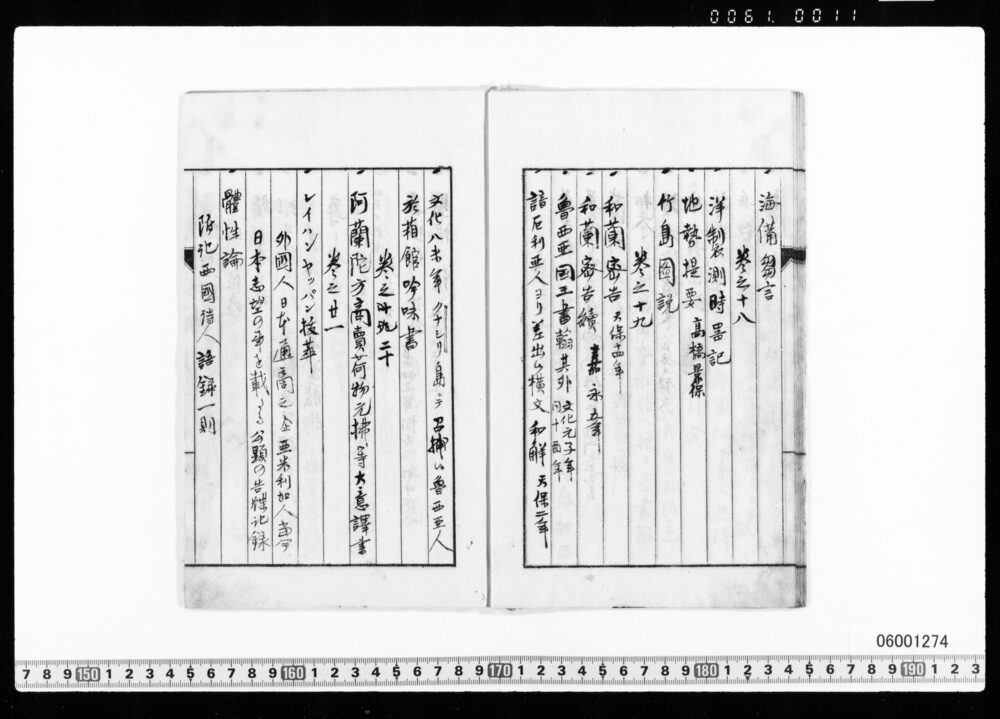 0061.0011
海備芻言
巻之十八
洋製測時畧記
地勢提要 高橋景保
竹島圖説
巻之十九
和蘭密告 天保十四年
和蘭密告續 嘉永五年
魯西亜国王書翰其外 文化元子年 同十酉年
諳厄利亜人ヨリ差出候横文和解 天保二年
文化八未年クナシリ島ニテ召捕候魯西亜人
於箱館吟味書
巻之 二十
阿蘭陀方商賣荷物元拂等大意譯書
巻之廿一
レイハンヤッパン抜萃
外國人日本通商之 亜米利加人当今
日本志望の事を載 公顕の告牒記録
體性論
附記西國 人語録一則
06001274
7 8 9 150 1 2 3 4 5 6 7 8 9 160 1 2 3 4 5 6 7 8 9 170 1 2 3 4 5 6 7 8 9 180 1 2 3 4 5 6 7 8 9 190 1 2 3